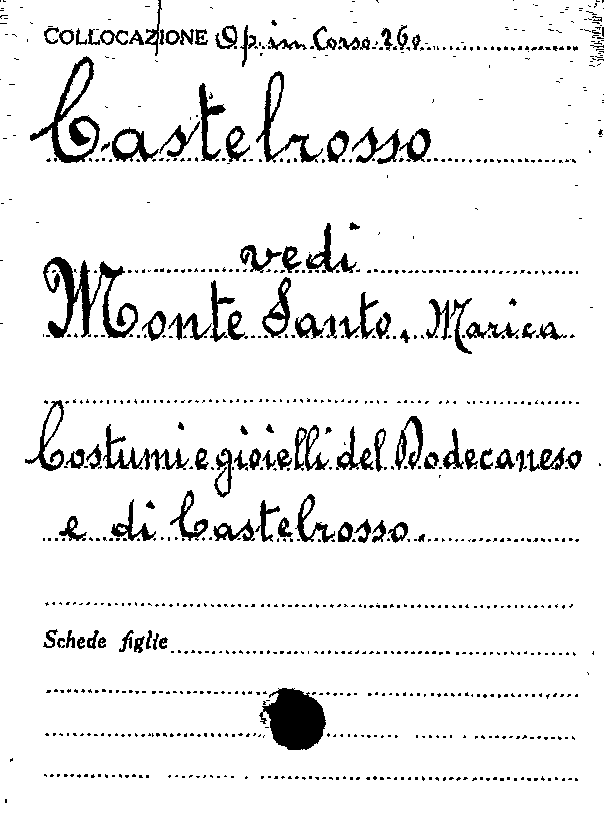 COLLOCAZIONE Op. in Corso 260
Castelrosso
vedi
Monte Santo, Marica
Costumi e gioielli del Dodecaneso
e di Castelrosso.
Schede figlie